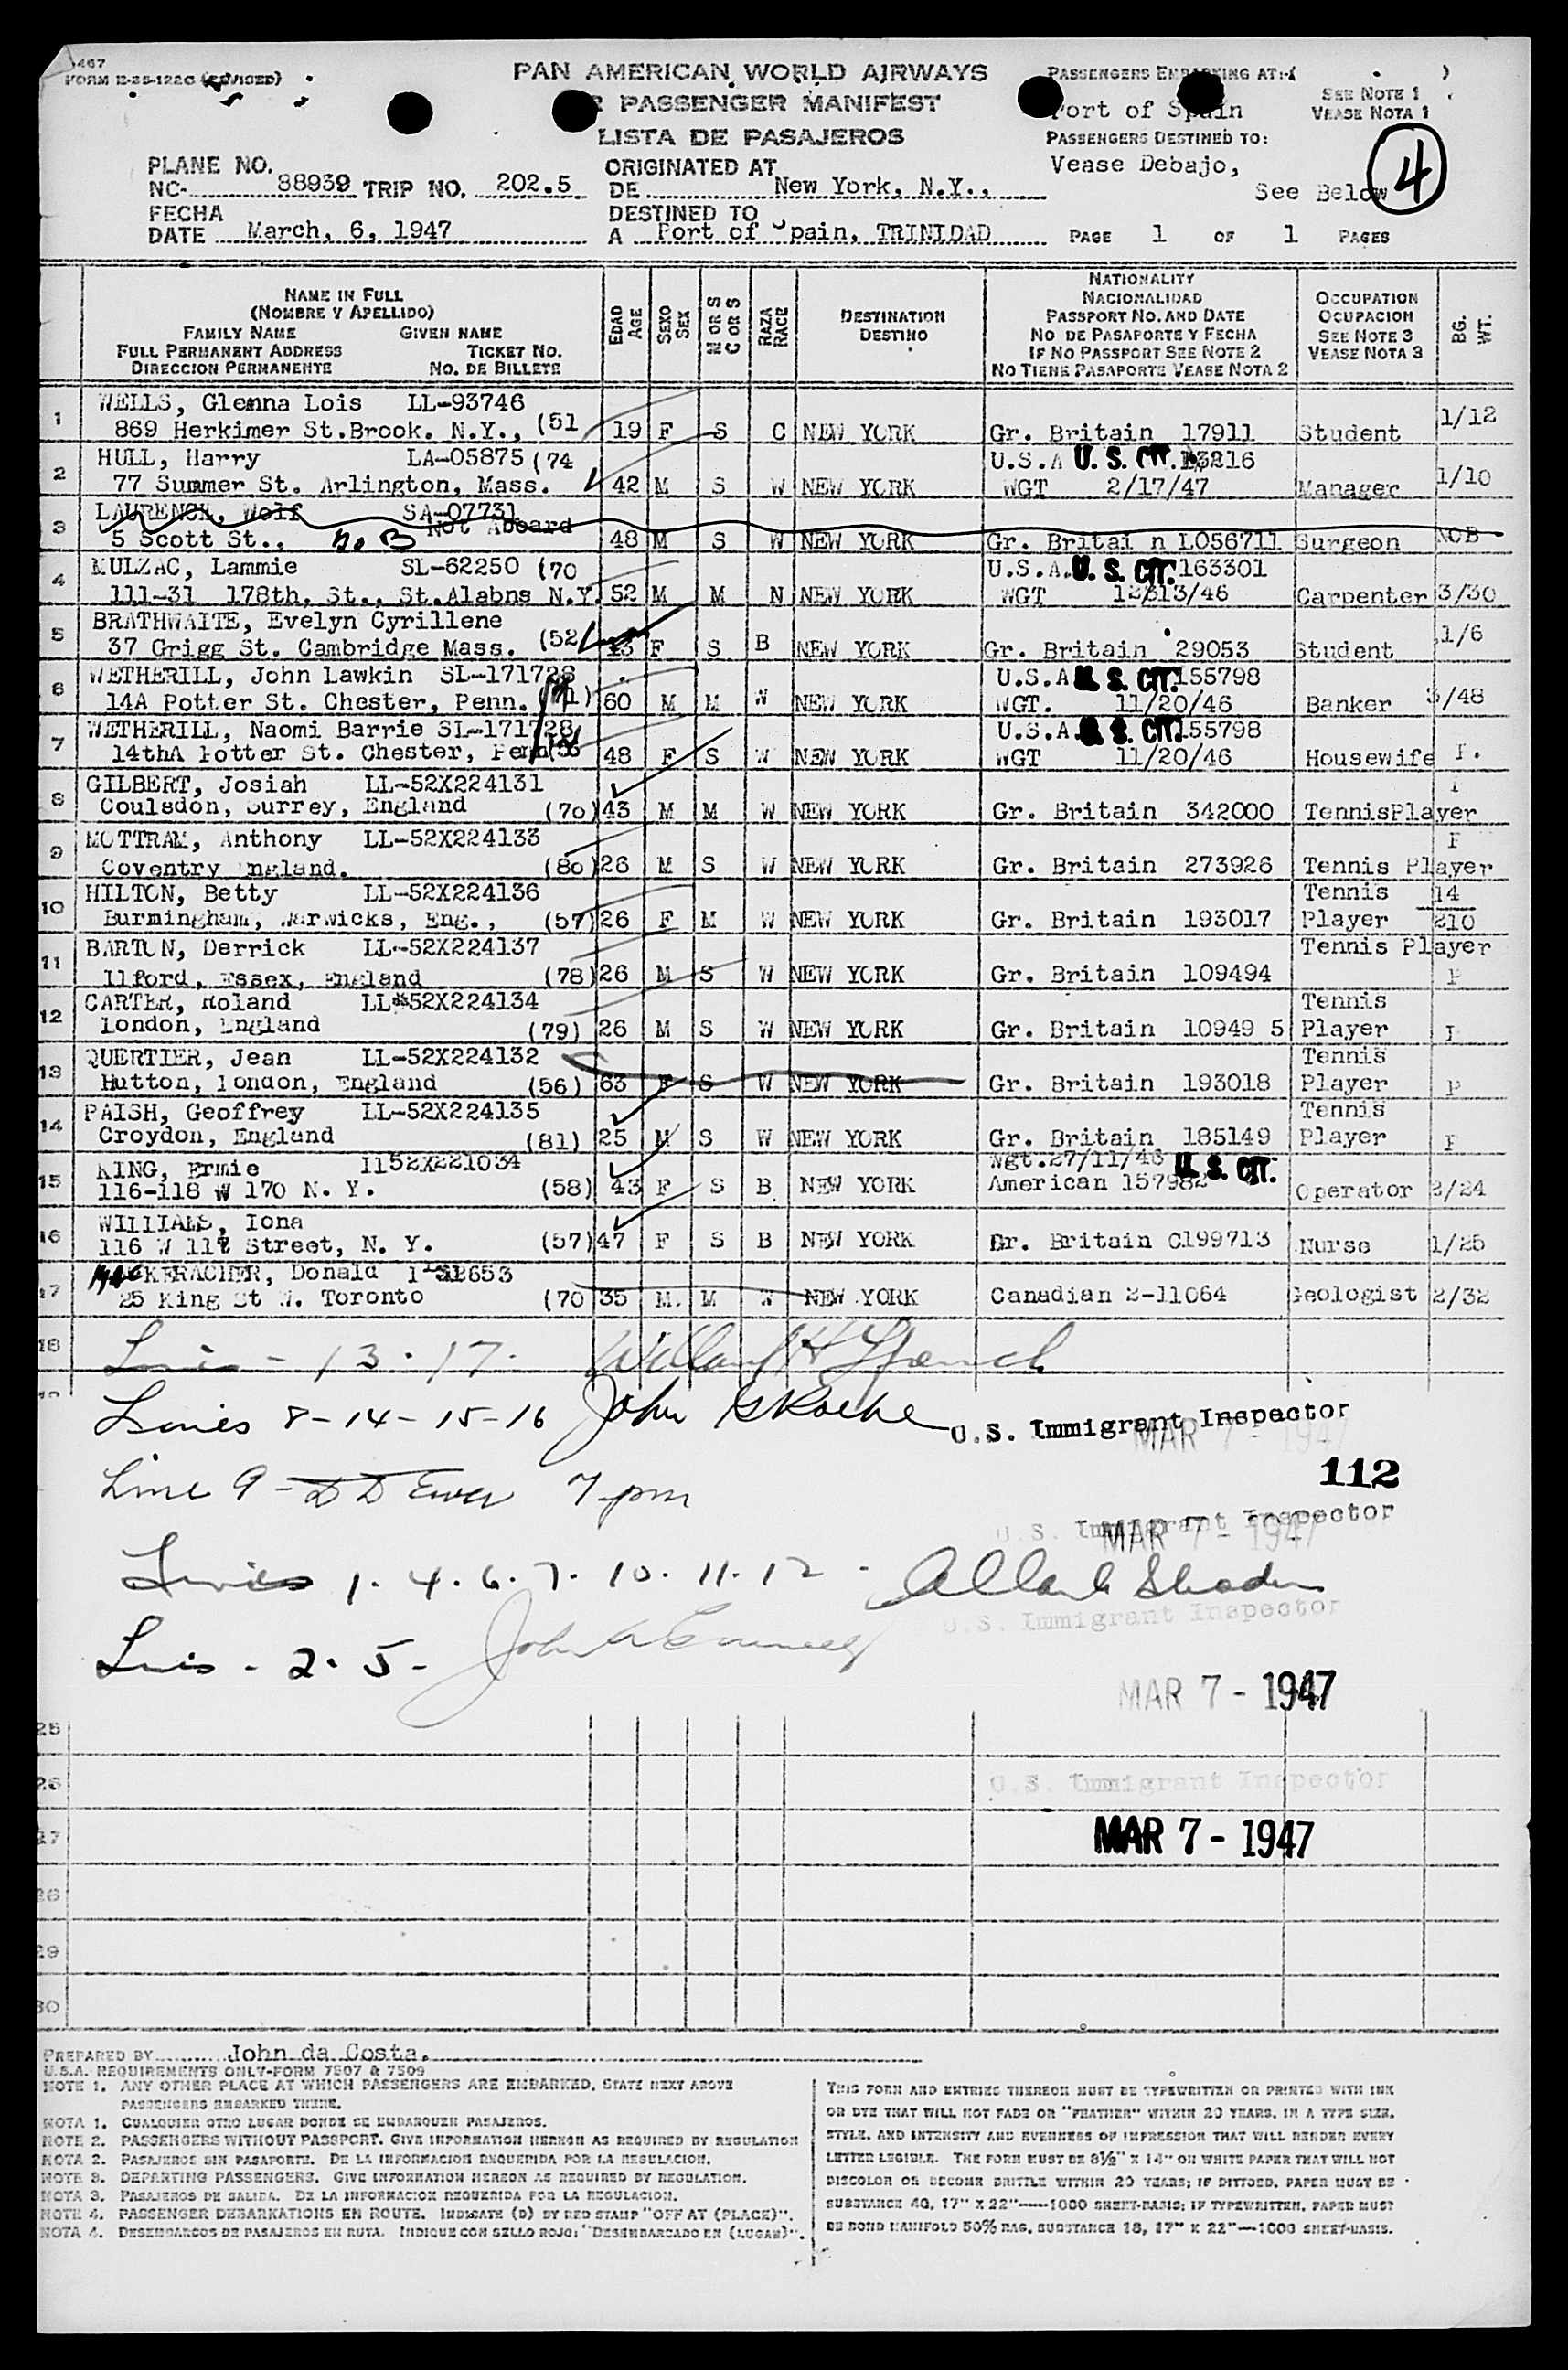 467
FORM E-35-122C (REVISED)
PAN AMERICAN WORLD AIRWAYS
PASSENGER MANIFEST
LISTA DE PASAJEROS
PASSENGERS EMBARKING AT:
Port of Spain
SEE NOTE 1
VEASE NOTA 1
PASSENGERS DESTINED TO:
Vease Debajo,
See Below
4
PLANE NO.
NC- 88939 TRIP NO. 202.5
ORIGINATED AT
DE New York, N.Y.,
FECHA
DATE March, 6, 1947
DESTINED TO
A Port of Spain, TRINIDAD
PAGE 1 OF 1 PAGES
NAME IN FULL
(NOMBRE Y APELLIDO)
FAMILY NAME GIVEN NAME
FULL PERMANENT ADDRESS TICKET NO.
DIRECCION PERMANENTE NO. DE BILLETE
EDAD AGE
SEXO SEX
M OR S C OR S
RAZA RACE
DESTINATION
DESTINO
NATIONALITY
NACIONALIDAD
PASSPORT NO. AND DATE
NO DE PASAPORTE Y FECHA
IF NO PASSPORT SEE NOTE 2
NO TIENE PASAPORTE VEASE NOTA 2
OCCUPATION
OCUPACION
SEE NOTE 3
VEASE NOTA 3
BG. WT.
1 WELLS, Glenna Lois LL-93746
869 Herkimer St.Brook. N.Y., (51 19 F S C NEW YORK Gr. Britain 17911 Student 1/12
2 HULL, Harry LA-05875 (74 U.S.A U. S. CIT.
77 Summer St. Arlington, Mass. 42 M S W NEW YORK WGT 2/17/47 Manager 1/10
3 LAURENCE, Wolf SA-07731
Not Aboard
5 Scott St., N.O.B 48 M S W NEW YORK Gr. Britai n L056711 Surgeon NOB
4 MULZAC, Lammie SL-62250 (70 U.S.A. U. S. CIT. 163301
111-31 178th, St., St.Alabns N.Y. 52 M M N NEW YORK WGT Carpenter 3/30
5 BRATHWAITE, Evelyn Cyrillene
37 Grigg St. Cambridge Mass. (52 F S B NEW YORK Gr. Britain 29053 Student 1/6
6 WETHERILL, John Lawkin SL-171728 U.S.A U. S. CIT. 155798
14A Potter St. Chester, Penn. 60 M M W NEW YORK WGT. 11/20/46 Banker 3/48
7 WETHERILL, Naomi Barrie SL-171728 U.S.A. U. S. CIT. 155798
14thA Potter St. Chester, Penn 48 F S W NEW YORK WGT 11/20/46 Housewife
8 GILBERT, Josiah LL-52X224131
Coulsdon, Surrey, England (70) 43 M M W NEW YORK Gr. Britain 342000 TennisPlayer
9 MOTTRAM, Anthony LL-52X224133
Coventry England. (80) 26 M S W NEW YORK Gr. Britain 273926 Tennis Player
10 HILTON, Betty LL-52X224136 Tennis 14
Burmingham, Warwicks, Eng., (57) 26 F M W NEW YORK Gr. Britain 193017 Player 210
11 BARTON, Derrick LL-52X224137 Tennis Player
Ilford, Essex, England (78) 26 M S W NEW YORK Gr. Britain 109494
12 CARTER, Roland LL-52X224134 Tennis
London, England (79) 26 M S W NEW YORK Gr. Britain 10949 5 Player
13 QUERTIER, Jean LL-52X224132 Tennis
Hutton, London, England (56) 63 F S W NEW YORK Gr. Britain 193018 Player P
14 PAISH, Geoffrey LL-52X224135 Tennis
Croydon, England (81) 25 M S W NEW YORK Gr. Britain 185149 Player P
15 KING, Ermie 1152X221034 Wgt.27/11/46 U. S. CIT.
116-118 W 170 N. Y. (58) 43 F S B NEW YORK American 157982 Operator 2/24
16 WILLIAMS, Iona
116 W 11t Street, N. Y. (57) 47 F S B NEW YORK Gr. Britain C199713 Nurse 1/25
17 MacKERACHER, Donald
25 King St W. Toronto (70 35 M. M W NEW YORK Canadian 2-11064 Geologist 2/32
18 Lines - 13. 17.
Lines 8-14-15-16 John
U.S. Immigrant Inspector
MAR 7 - 1947
112
Line 9 - 7 pm
U.S. Immigrant Inspector
MAR 7 - 1947
Lines 1. 4. 6. 7. 10. 11. 12.
U.S. Immigrant Inspector
Lines - 2. 5 - John
MAR 7 - 1947
25
26
U.S. Immigrant Inspector
27
MAR 7 - 1947
28
29
30
PREPARED BY John da Costa.
U.S.A. REQUIREMENTS ONLY-FORM 7507 & 7509
NOTE 1. ANY OTHER PLACE AT WHICH PASSENGERS ARE EMBARKED, STATE NEXT ABOVE
PASSENGERS EMBARKED THERE.
NOTA 1. CUALQUIER OTRO LUGAR DONDE SE EMBARQUEN PASAJEROS.
NOTE 2. PASSENGERS WITHOUT PASSPORT. GIVE INFORMATION HEREON AS REQUIRED BY REGULATION
NOTA 2. PASAJEROS SIN PASAPORTE. DE LA INFORMACION REQUERIDA POR LA REGULACION.
NOTE 3. DEPARTING PASSENGERS. GIVE INFORMATION HEREON AS REQUIRED BY REGULATION.
NOTA 3. PASAJEROS DE SALIDA. DE LA INFORMACION REQUERIDA POR LA REGULACION.
NOTE 4. PASSENGER DEBARKATIONS EN ROUTE. INDICATE (D) BY RED STAMP "OFF AT (PLACE)".
NOTA 4. DESEMBARCOS DE PASAJEROS EN RUTA. INDIQUE CON SELLO ROJO: "DESEMBARCADO EN (LUGAR)".
THIS FORM AND ENTRIES THEREON MUST BE TYPEWRITTEN OR PRINTED WITH INK
OR DYE THAT WILL NOT FADE OR "FEATHER" WITHIN 20 YEARS, IN A TYPE SIZE,
STYLE, AND INTENSITY AND EVENNESS OF IMPRESSION THAT WILL RENDER EVERY
LETTER LEGIBLE. THE FORM MUST BE 8½" X 14" ON WHITE PAPER THAT WILL NOT
DISCOLOR OR BECOME BRITTLE WITHIN 20 YEARS; IF DITTOED, PAPER MUST BE
SUBSTANCE 40, 17" X 22"-----1000 SHEET-BASIS; IF TYPEWRITTEN, PAPER MUST
BE BOND MANIFOLD 50% RAG, SUBSTANCE 18, 17" X 22"—1000 SHEET-BASIS.